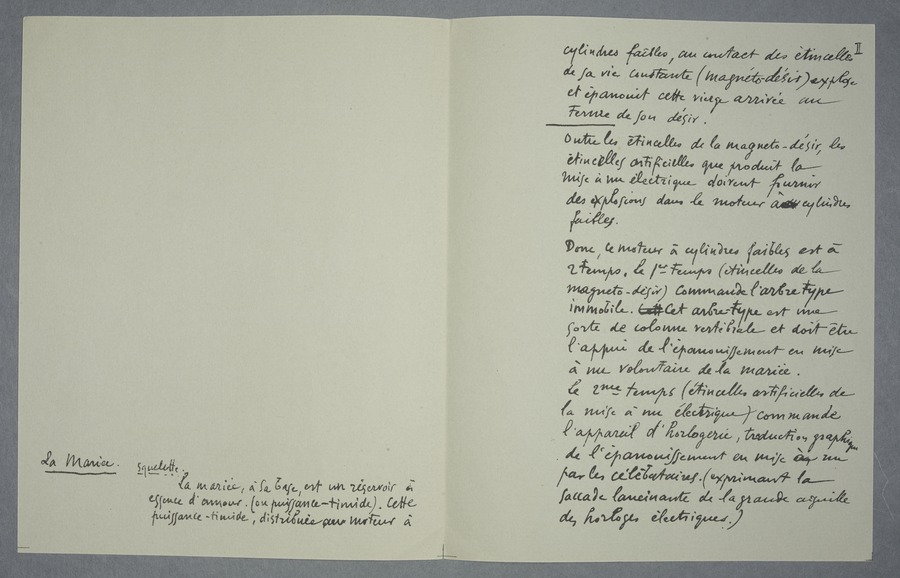 La Mariée. Squelette.
La mariée, à sa base, est un réservoir à
essence d'amour. (ou puissance-timide). Cette
puissance-timide, distribuée au moteur à
II
cylindres faibles, au contact des étincelles
de sa vie constante (magnéto-désir) explose
et épanouit cette vierge arrivée au
terme de son désir.
Outre les étincelles de la magneto-désir, les
étincelles artificielles que produit la
mise à nu électrique doivent fournir
des explosions dans le moteur à cylindres
faibles.
Donc, le moteur à cylindres faibles est à
2 temps. Le 1er temps (étincelles de la
magneto-désir) commande l'arbre type
immobile. Cet arbre-type est une
sorte de colonne vertébrale et doit être
l'appui de l'épanouissement en mise
à nu volontaire de la mariée.
Le 2me temps (étincelles artificielles de
la mise à nu électrique) commande
l'appareil d'horlogerie, traduction graphique
de l'épanouissement en mise à nu
par les célibataires. (exprimant la
saccade lancinante de la grande aiguille
des horloges électriques.)